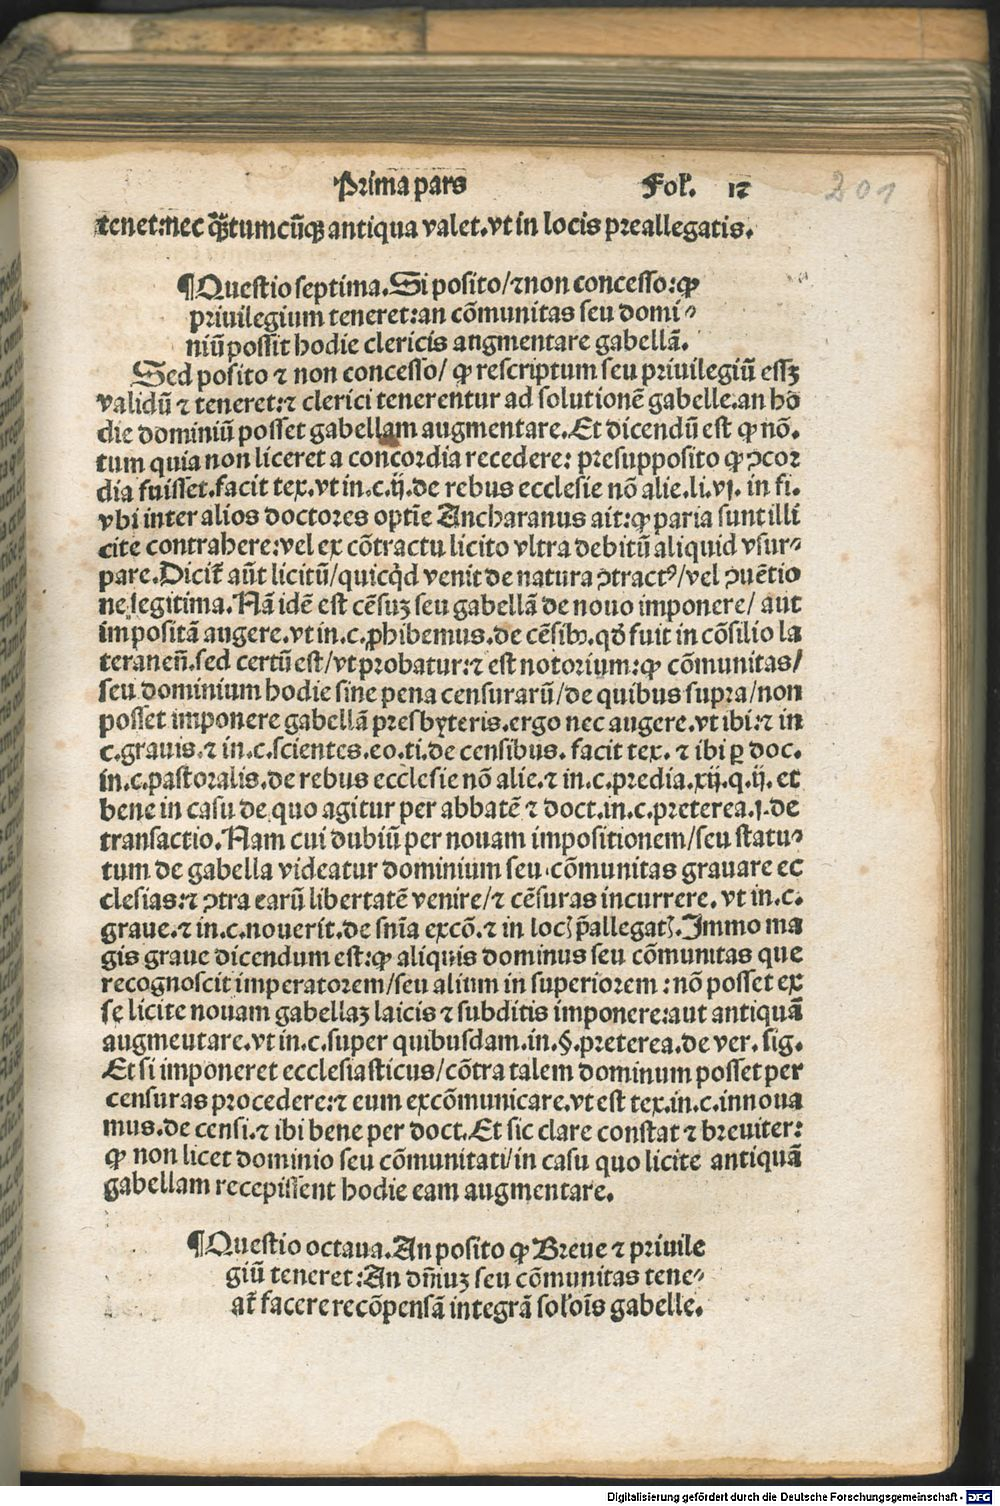 Prima pars Fol. 12 201
tenet:nec qƷ̃tumcũqȝ antiqua valet.vt in locis preallegatis.
¶Questio septima.Si posito/⁊ non concesso:ꝙ
priuilegium teneret:an cõmunitas seu domi⸗
niũ possit hodie clericis augmentare gabellã.
Sed posito ⁊ non concesso/ ꝙ rescriptum seu priuilegiũ essȝ
validũ ⁊ teneret:⁊ clerici tenerentur ad solutionẽ gabelle.an ho
die dominiũ posset gabellam augmentare.Et dicendũ est ꝙ nõ.
tum quia non liceret a concordia recedere: presupposito ꝙ ↄcor
dia fuisset.facit tex.vt in.c.ij.de rebus ecclesie nõ alie.li.vj. in fi.
vbi inter alios doctores optĩe Ancharanus ait:ꝙ paria sunt illi
cite contrahere:vel ex cõtractu licito vltra debitũ aliquid vsur⸗
pare.Dicit̃ aũt licitũ/quicq̇d venit de natura ↄtractꝰ/vel ↄuẽtio
ne legitima.Nã idẽ est cẽsuȝ seu gabellã de nouo imponere/ aut
impositã augere.vt in.c.ꝓhibemus.de cẽsibꝰ.qđ fuit in cõsilio la
teraneñ.sed certũ est/vt probatur:⁊ est notorium:ꝙ cõmunitas/
seu dominium hodie sine pena censurarũ/de quibus supra/non
posset imponere gabellã presbyteris.ergo nec augere.vt ibi:⁊ in
c.grauis.⁊ in.c.scientes.eo.ti.de censibus. facit tex. ⁊ ibi ꝑ doc.
in.c.pastoralis.de rebus ecclesie nõ alie.⁊ in.c.predia.xij.q.ij. et
bene in casu de quo agitur per abbatẽ ⁊ doct.in.c.preterea.j.de
transactio.Nam cui dubiũ per nouam impositionem/seu statu⸗
tum de gabella videatur dominium seu cõmunitas grauare ec
clesias:⁊ ↄtra earũ libertatẽ venire/⁊ cẽsuras incurrere. vt in.c.
graue.⁊ in.c.nouerit.de snĩa excõ.⁊ in locꝭ p̃allegatꝭ.Immo ma
gis graue dicendum est:ꝙ aliquis dominus seu cõmunitas que
recognoscit imperatorem/seu alium in superiorem : nõ posset ex
se licite nouam gabellaȝ laicis ⁊ subditis imponere:aut antiquã
augmeutare.vt in.c.super quibusdam.in.§.preterea.de ver. sig.
Et si imponeret ecclesiasticus/cõtra talem dominum posset per
censuras procedere:⁊ eum excõmunicare.vt est tex.in.c.innoua
mus.de censi.⁊ ibi bene per doct.Et sic clare constat ⁊ breuiter:
ꝙ non licet dominio seu cõmunitati/in casu quo licite antiquã
gabellam recepissent hodie eam augmentare.
¶Questio octaua.An posito ꝙ Breue ⁊ priuile
giũ teneret:An dñiuȝ seu cõmunitas tene⸗
at̃ facere recõpensã integrã sol'oĩs gabelle.
Digitalisierung gefördert durch die Deutsche Forschungsgemeinschaft - DFG